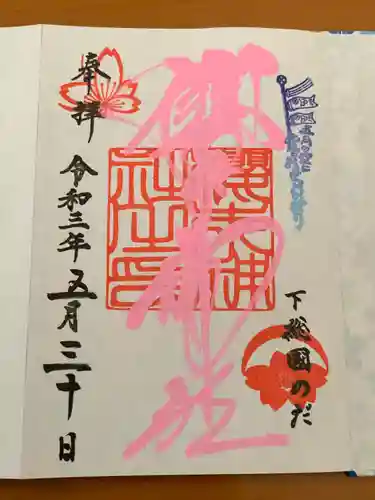 下総國のだ
櫻木神社
櫻木神
社之印
奉拝
令和三年五月三十日